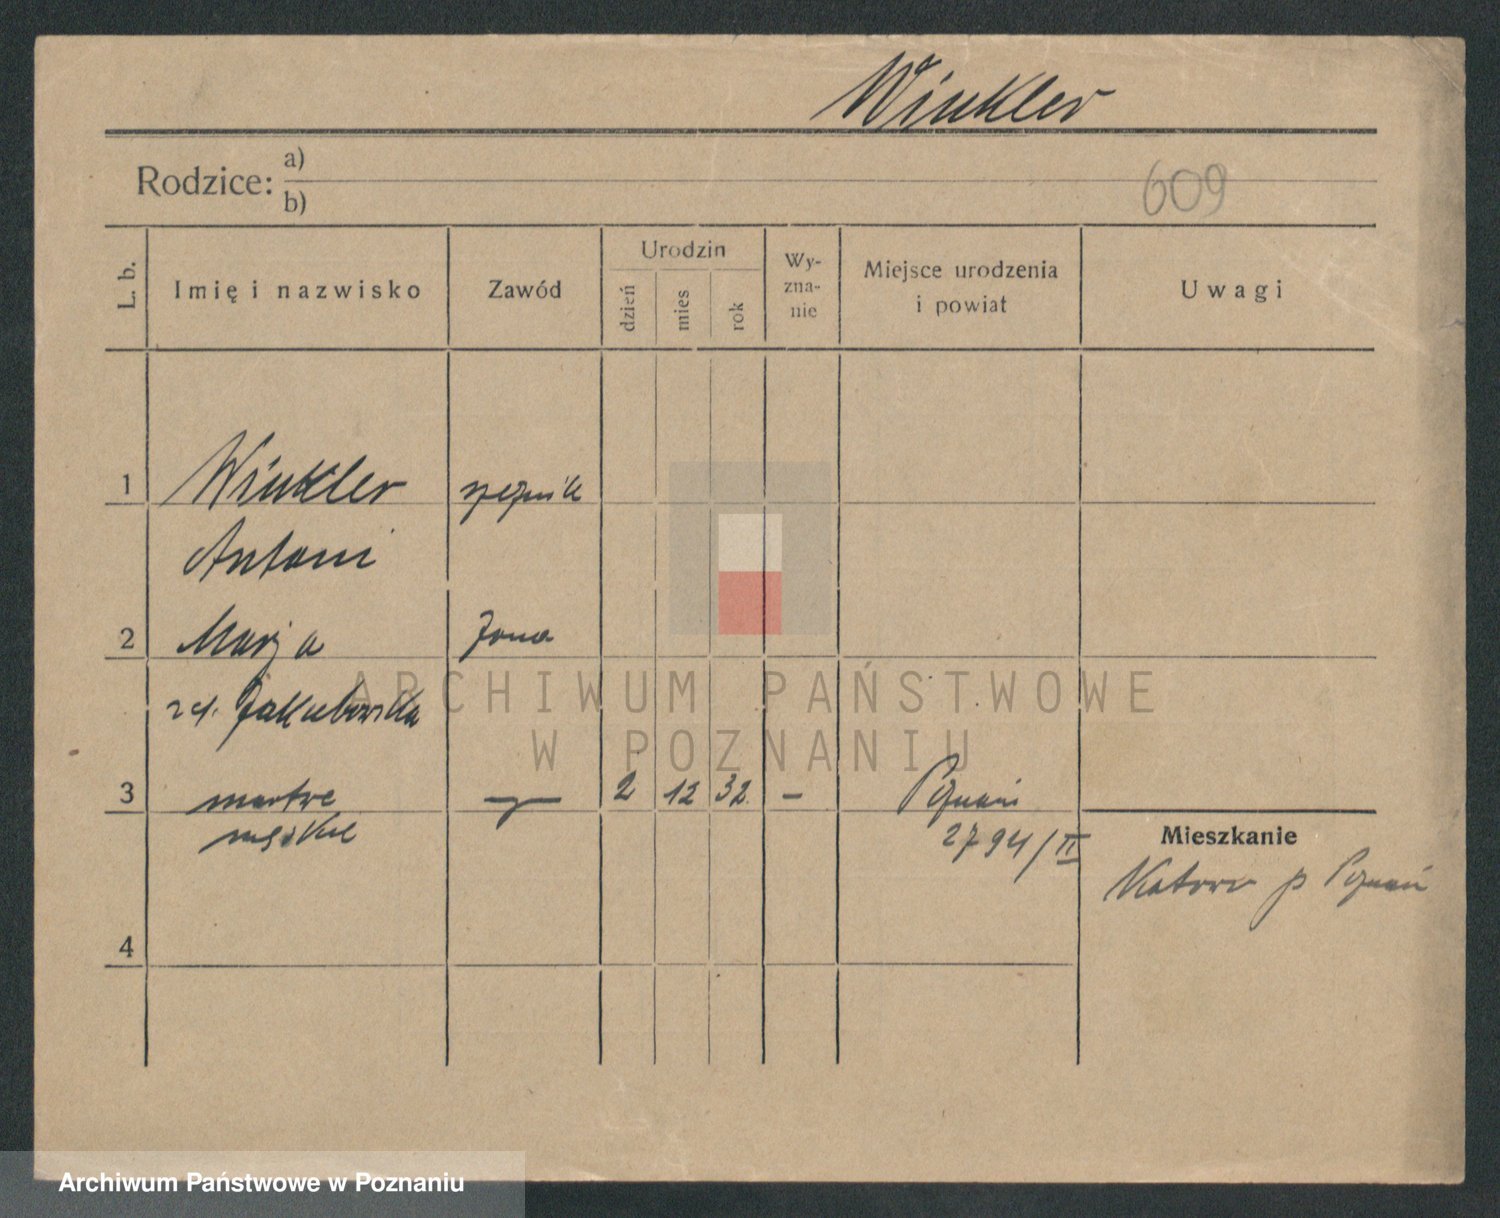 Winkler
Rodzice: a)
b)
609
L. b.
Imię i nazwisko
Zawód
Urodzin
dzień
mies
rok
Wy-
zna-
nie
Miejsce urodzenia
i powiat
Uwagi
1 Winkler
Antoni
2 Marja żona
zd. Jakubowska
ARCHIWUM PAŃSTWOWE
W POZNANIU
3 martwe — 2 12 32 — Poznań
męskie 2794/II
Mieszkanie
p Poznań
4
Archiwum Państwowe w Poznaniu